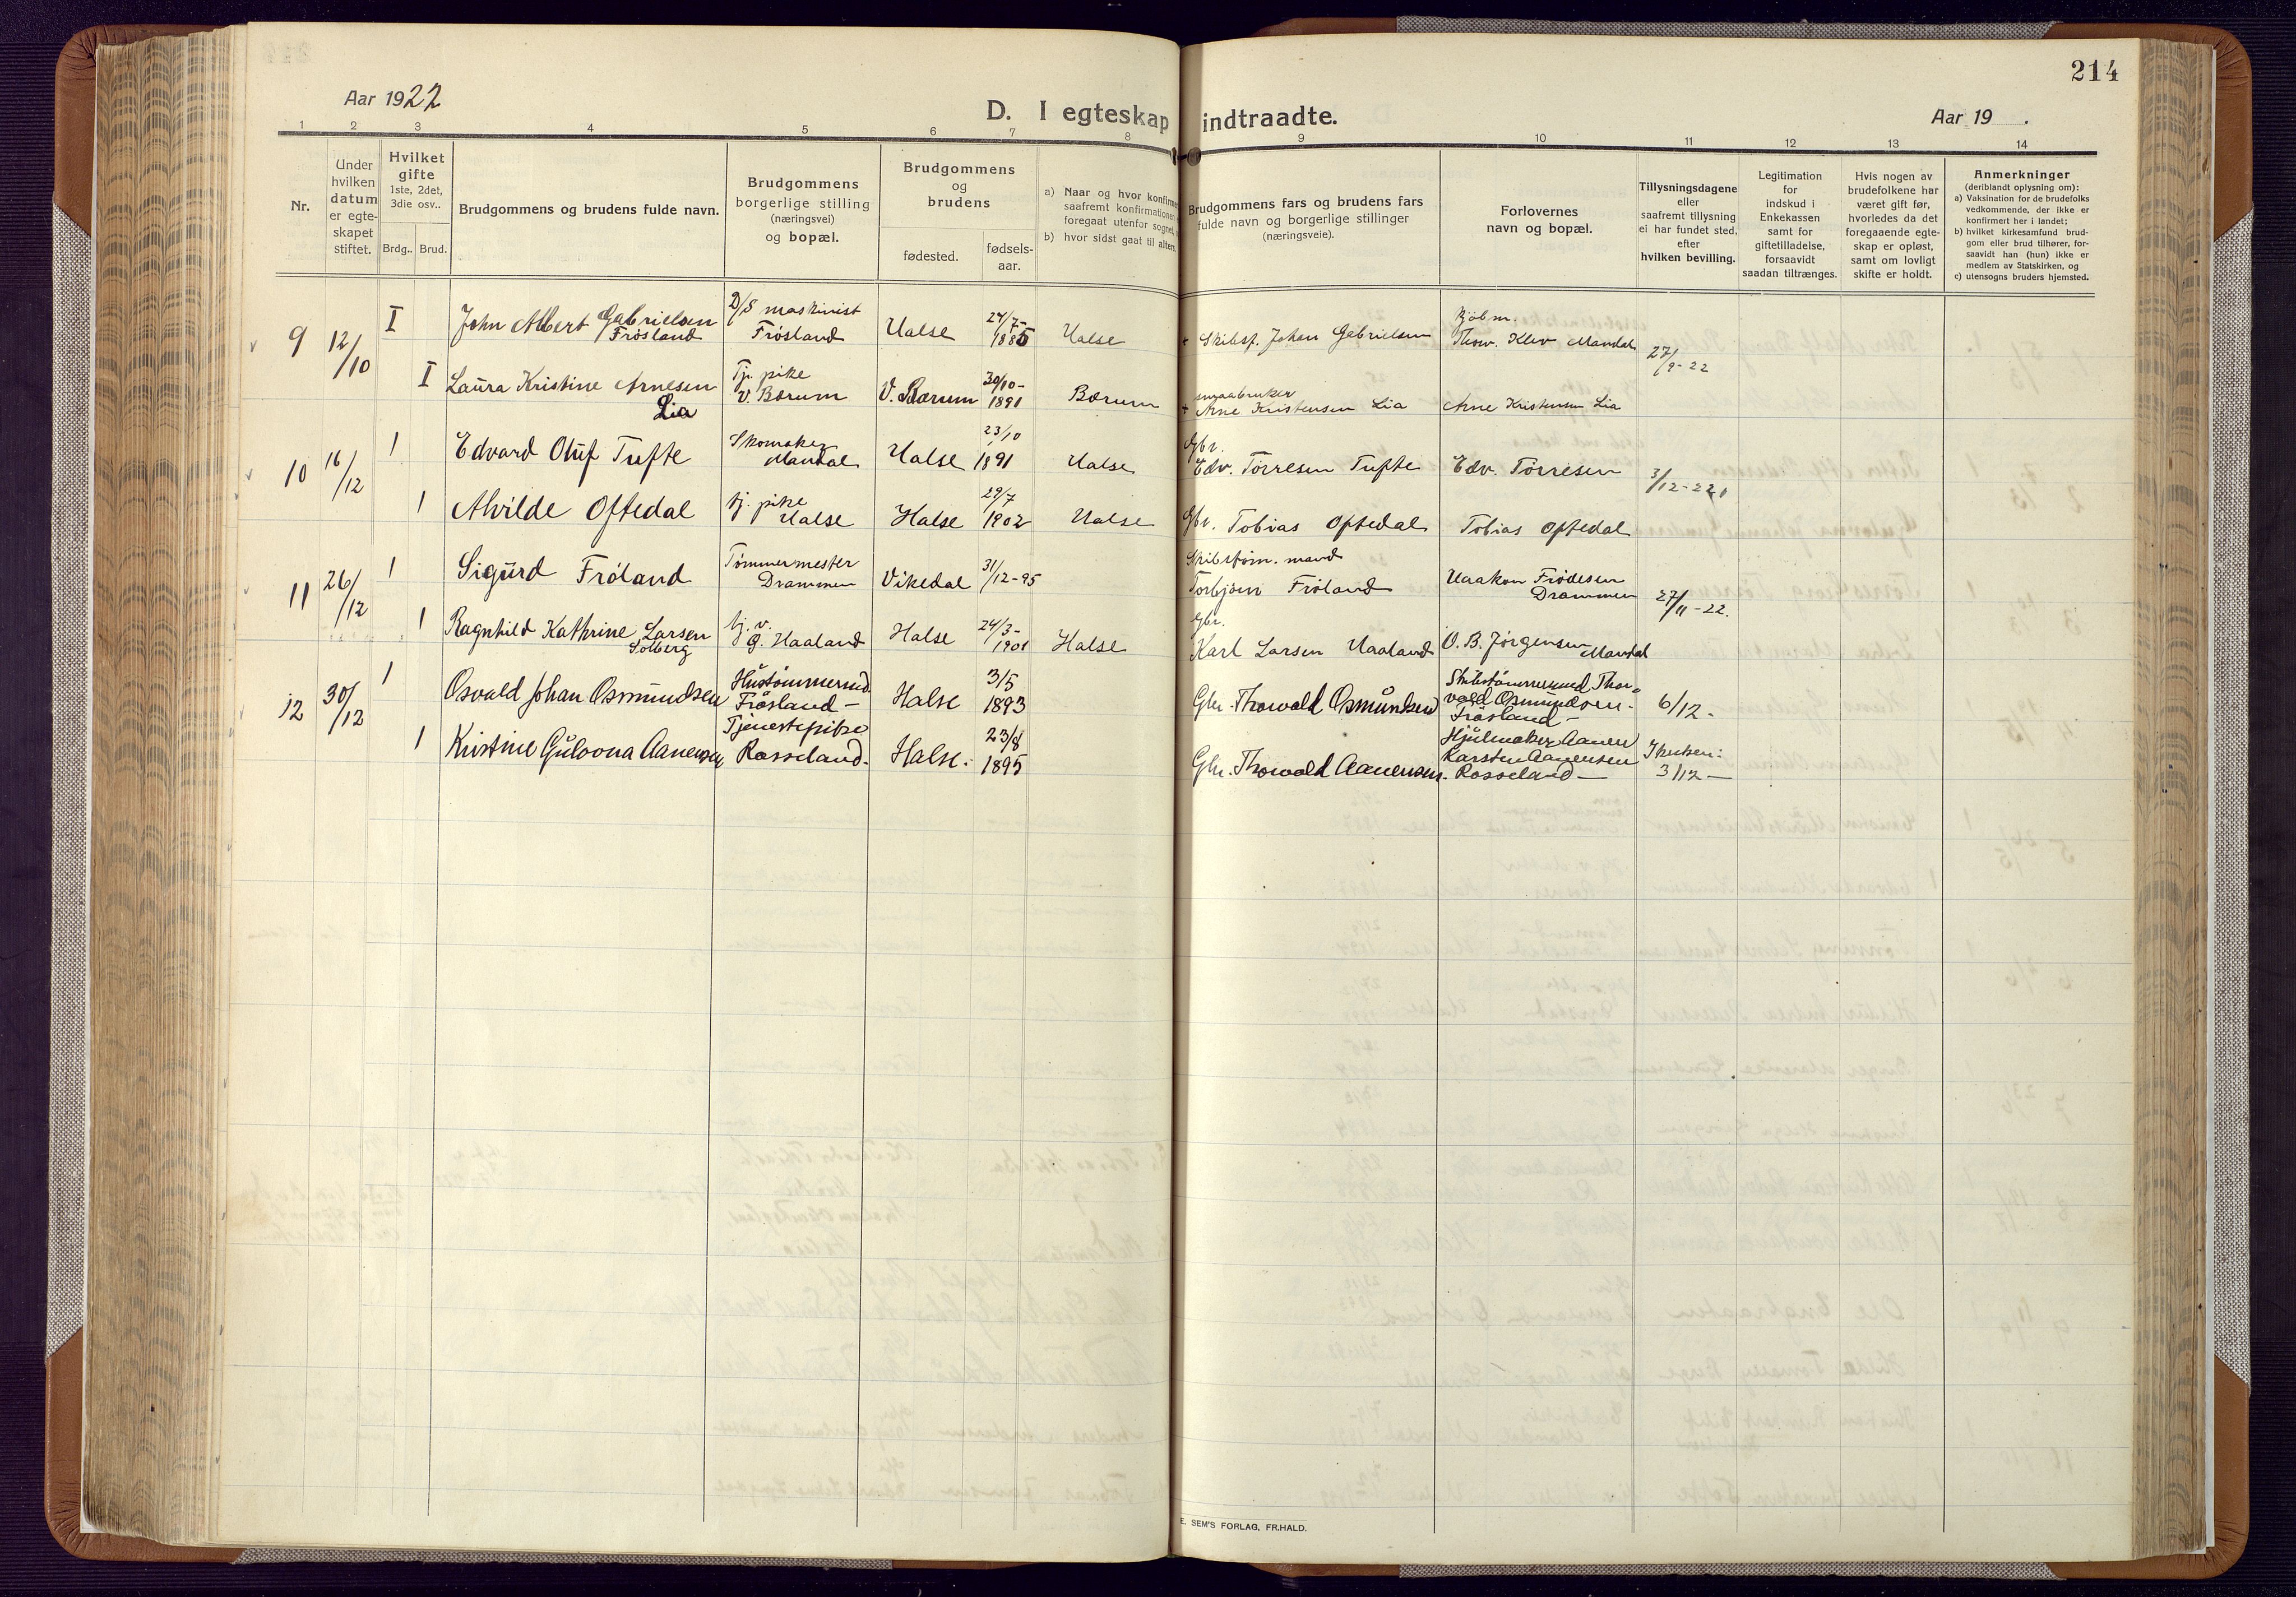 214
Aar 1922
D. I egteskap indtraadte.
Aar 19 .
1 2 3 4 5 6 7 8 9 10 11 12 13 14
Nr.
Under
hvilken
datum
er egte-
skapet
stiftet.
Hvilket
gifte
1ste, 2det,
3die osv..
Brdg.. Brud.
Brudgommens og brudens fulde navn.
Brudgommens
borgerlige stilling
(næringsvei)
og bopæl.
Brudgommens
og
brudens
fødested.
fødsels-
aar.
a) Naar og hvor konfirme
saafremt konfirmationen
foregaat utenfor sognet,
b) hvor sidst gaat til alters.
Brudgommens fars og brudens fars
fulde navn og borgerlige stillinger
(næringsveie).
Forlovernes
navn og bopæl.
Tillysningsdagene
eller
saafremt tillysning
ei har fundet sted,
efter
hvilken bevilling.
Legitimation
for
indskud i
Enkekassen
samt for
giftetilladelse,
forsaavidt
saadan tiltrænges.
Hvis nogen av
brudefolkene har
været gift før,
hvorledes da det
foregaaende egte-
skap er opløst,
samt om lovligt
skifte er holdt.
Anmerkninger
(deriblandt oplysning om):
a) Vaksination for de brudefolks
vedkommende, der ikke er
konfirmert her i landet;
b) hvilket kirkesamfund brud-
gom eller brud tilhører, for-
saavidt han (hun) ikke er
medlem av Statskirken, og
c) utensogns bruders hjemsted.
9 12/10 I John Albert Gabrielsen
Frösland
D/S maskinist
Frösland
Halse 24/7-
1885
Halse
+ Skibsf. Johan Gabrielsen
Kjøbm.
Thorv. Klev Mandal
27/9-22
I Laura Kristine Arnesen
Lia
Tj. pike
V. Bærum
V. Bærum 30/10-
1891
Bærum
smaabruker
+ Arne Kristensen Lia
Arne Kristensen Lia
10 16/12 1 Edvard Oluf Tufte
Skomaker
Mandal
Halse 23/10
1891
Halse
Gbr.
Edv. Törresen Tufte
Edv. Törresen
3/12-22
1 Alvilde Oftedal
tj. pike
Halse
Halse 29/7
1902
Halse
Gbr. Tobias Oftedal
Tobias Oftedal
11 26/12 1 Sigurd Fröland
Tømmermester
Drammen
Vikedal 31/12-95
Skibstøm. mand
Torbjørn Fröland
Haakon Frödesen
Drammen
27/11-22.
1 Ragnhild Kathrine Larsen
Solberg
tj. v.
G. Haaland
Halse 24/3-
1901
Halse
Gbr.
Karl Larsen Haaland
O. B. Jørgensen
Mandal
12 30/12 1 Osvald Johan Osmundsen
Hustömmermd.
Frösland -
Halse 3/5
1893
Gbr. Thorvald Osmundsen
Skibstömmermnd Thor-
vald Osmundsen.
Frösland -
6/12-
1 Kristine Gulovna Aanensen
Tjenestepike
Rosseland.
Halse. 23/8
1895
Gbr. Thorvald Aanensen.
Hjulmaker Aanen
Karsten Aanensen
Rosseland -
3/12 -
E. SEM'S FORLAG, FR.HALD.